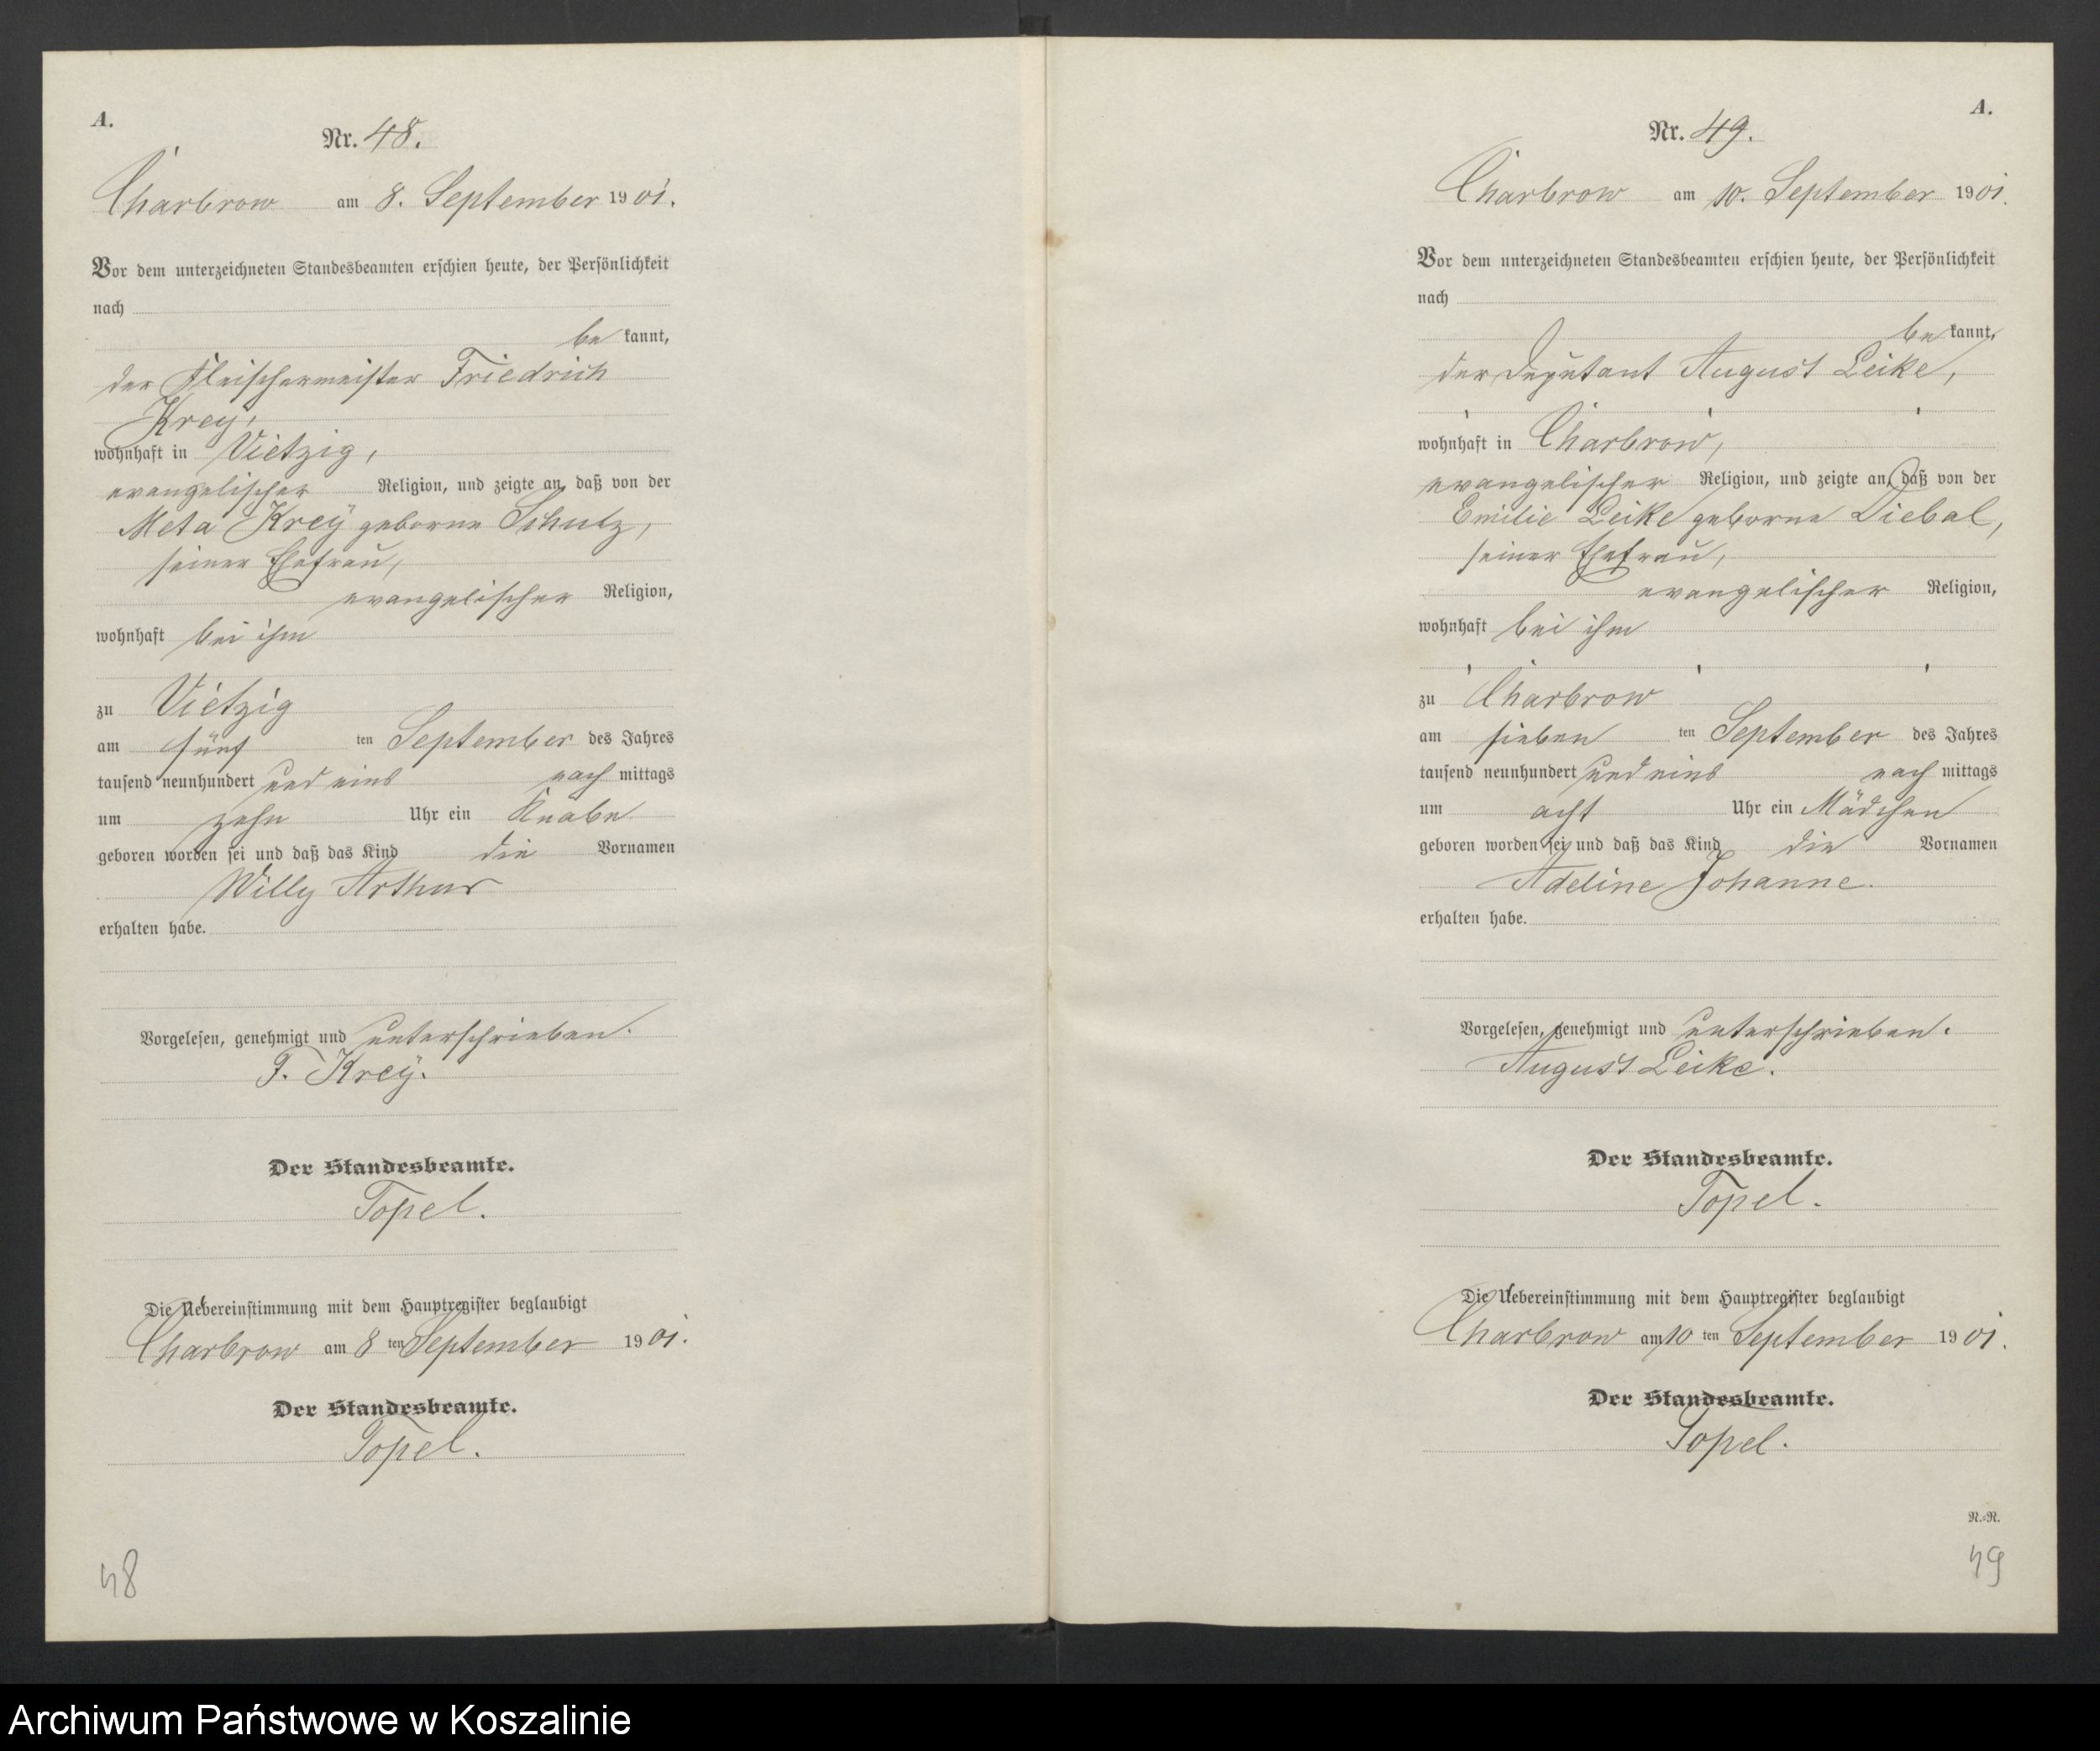 A.
Nr. 48.
Charbrow am 8. September 1901.
Vor dem unterzeichneten Standesbeamten erschien heute, der Persönlichkeit
nach
be kannt,
der Fleischermeister Friedrich
Krey,
wohnhaft in Vietzig,
evangelischer Religion, und zeigte an, daß von der
Meta Krey geborne Schulz,
seiner Ehefrau,
evangelischer Religion,
wohnhaft bei ihm
zu Vietzig
am fünf ten September des Jahres
tausend neunhundert und eins nach mittags
um zehn Uhr ein Knabe
geboren worden sei und daß das Kind die Vornamen
Willy Arthur
erhalten habe.
Vorgelesen, genehmigt und unterschrieben.
F. Krey.
Der Standesbeamte.
Topel.
Die Uebereinstimmung mit dem Hauptregister beglaubigt
Charbrow am 8 ten September 1901.
Der Standesbeamte.
Topel.
48
A.
Nr. 49.
Charbrow am 10. September 1901.
Vor dem unterzeichneten Standesbeamten erschien heute, der Persönlichkeit
nach
be kannt,
der Deputant August Leike,
wohnhaft in Charbrow,
evangelischer Religion, und zeigte an, daß von der
Emilie Leike geborne Diebal,
seiner Ehefrau,
evangelischer Religion,
wohnhaft bei ihm
zu Charbrow
am sieben ten September des Jahres
tausend neunhundert und eins nach mittags
um acht Uhr ein Mädchen
geboren worden sei und daß das Kind die Vornamen
Adeline Johanne.
erhalten habe.
Vorgelesen, genehmigt und unterschrieben.
August Leike.
Der Standesbeamte.
Topel.
Die Uebereinstimmung mit dem Hauptregister beglaubigt
Charbrow am 10 ten September 1901.
Der Standesbeamte.
Topel.
N.-R.
49
Archiwum Państwowe w Koszalinie